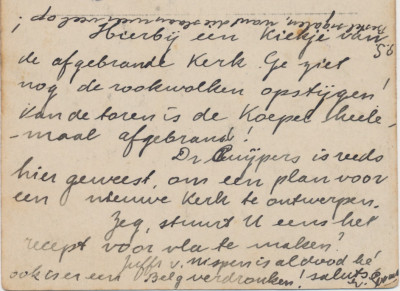 Hierbij een Kiekje van
de afgebrande Kerk. Ge ziet
nog de rookwolken opstijgen!
Van de toren is de Koepel heele-
-maal afgebrand!
Dr Cuijpers is reeds
hier geweest, om een plan voor
een nieuwe Kerk te ontwerpen.
Zeg, stuurt U eens het
recept voor vla te maken?
Juffr v. Nispen is al dood hè
ook is er een Belg verdronken! saluts